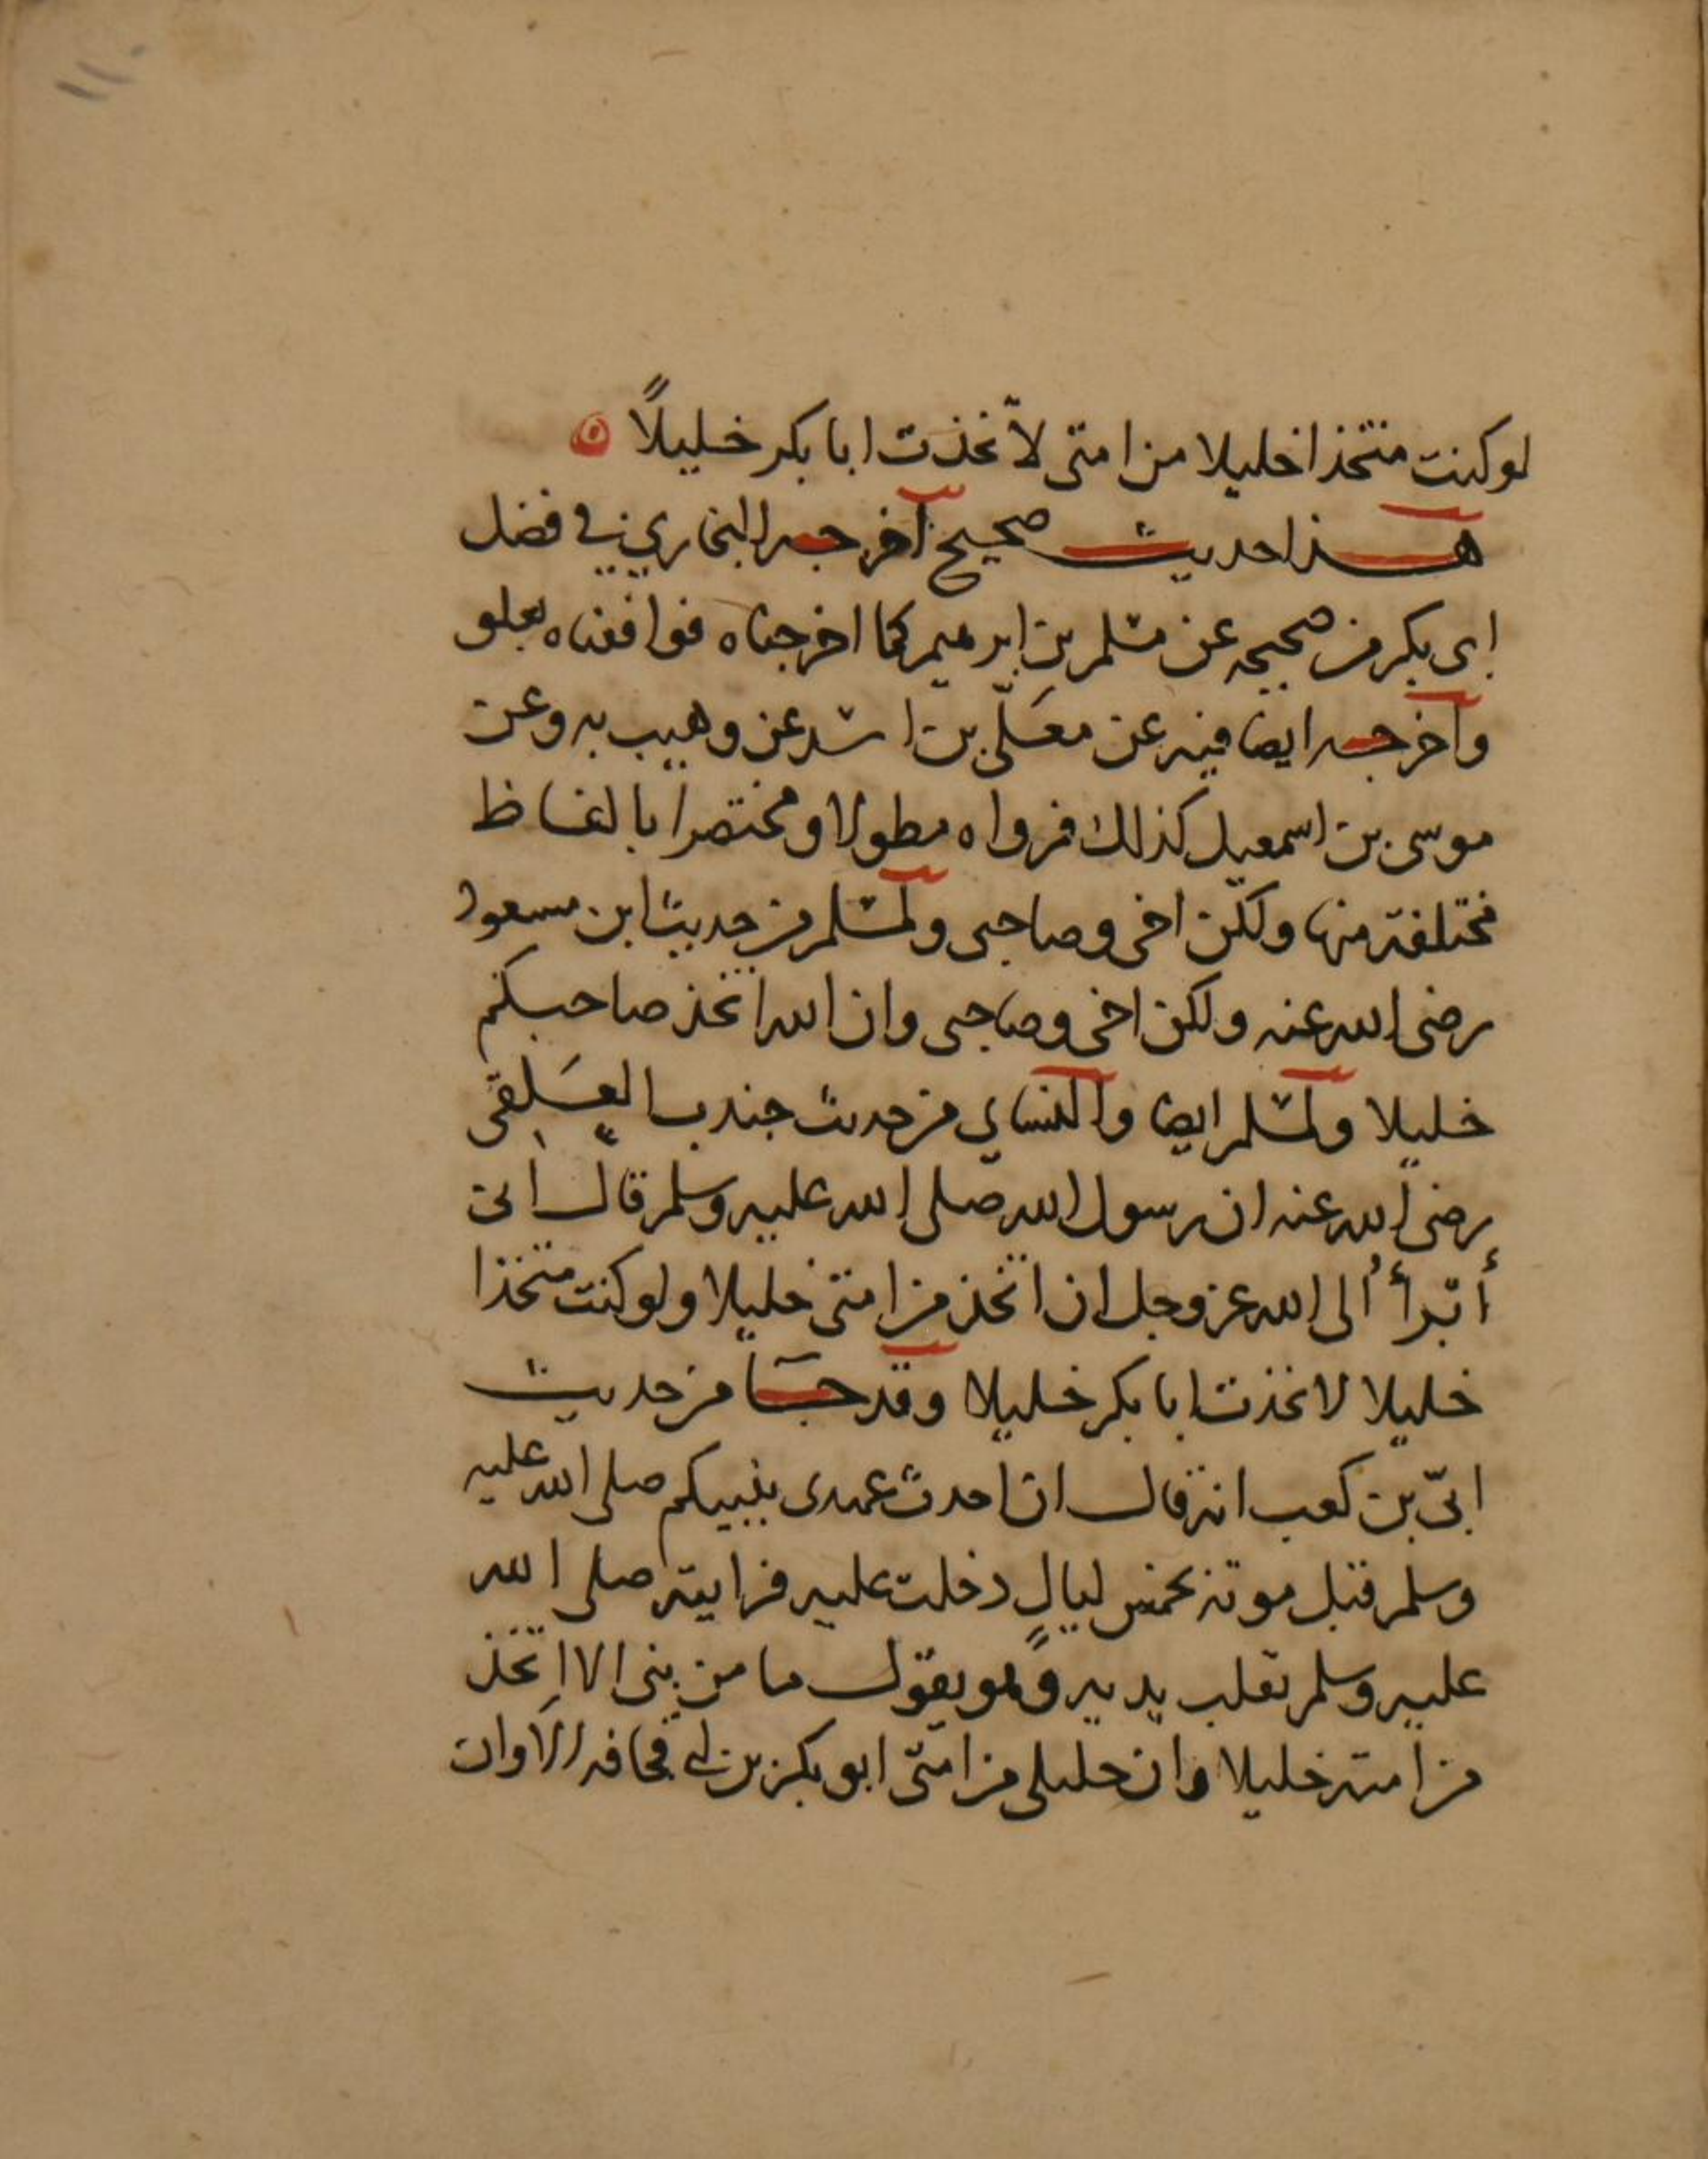 ١١٠
لو كنت متخذا خليلا من امتى لاتخذت ابا بكر خليلاً
هذا حديث صحيح أخرجه البخاري في فضل
ابى بكر من صحيحه عن مسلم بن ابرهيم كما اخرجناه فوافقناه بعلو
وأخرجه ايضا فيه عن معلّى بن اسد عن وهيب به وعن
موسى بن اسمعيل كذلك فرواه مطولا ومختصرا بالفاظ
مختلفة منها ولكن اخى وصاحبى ولمسلم من حديث ابن مسعود
رضى الله عنه ولكن اخى وصاحبى وان الله اتخذ صاحبكم
خليلا ولمسلم ايضا والنساي من حديث جندب العَلقى
رضى الله عنه ان رسول الله صلى الله عليه وسلم قال انى
أتبرأ الى الله عز وجل ان اتخذ من امتى خليلا ولو كنت متخذا
خليلا لاتخذت ابا بكر خليلا وقد جَآ من حديث
ابىّ بن كعب انه قال ان احدث عهدى بنبيكم صلى الله عليه
وسلم قبل موته بخمس ليالٍ دخلت عليه فرايته صلى الله
عليه وسلم يقلب يديه وهو يقول ما من نبى الا اتخذ
من امته خليلا وان خليلى من امتى ابو بكر بن ابى قحافه الا وان